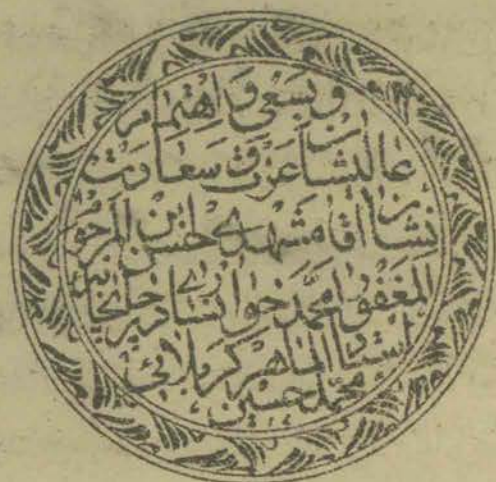 و بسعی و اهتمام
عالیشان عزت و سعادت
نشان اقا مشهدی حسن ابن المرحوم
المغفور محمد خوانساری در چاپخانه
استاد الماهر کربلائی
محمد حسین